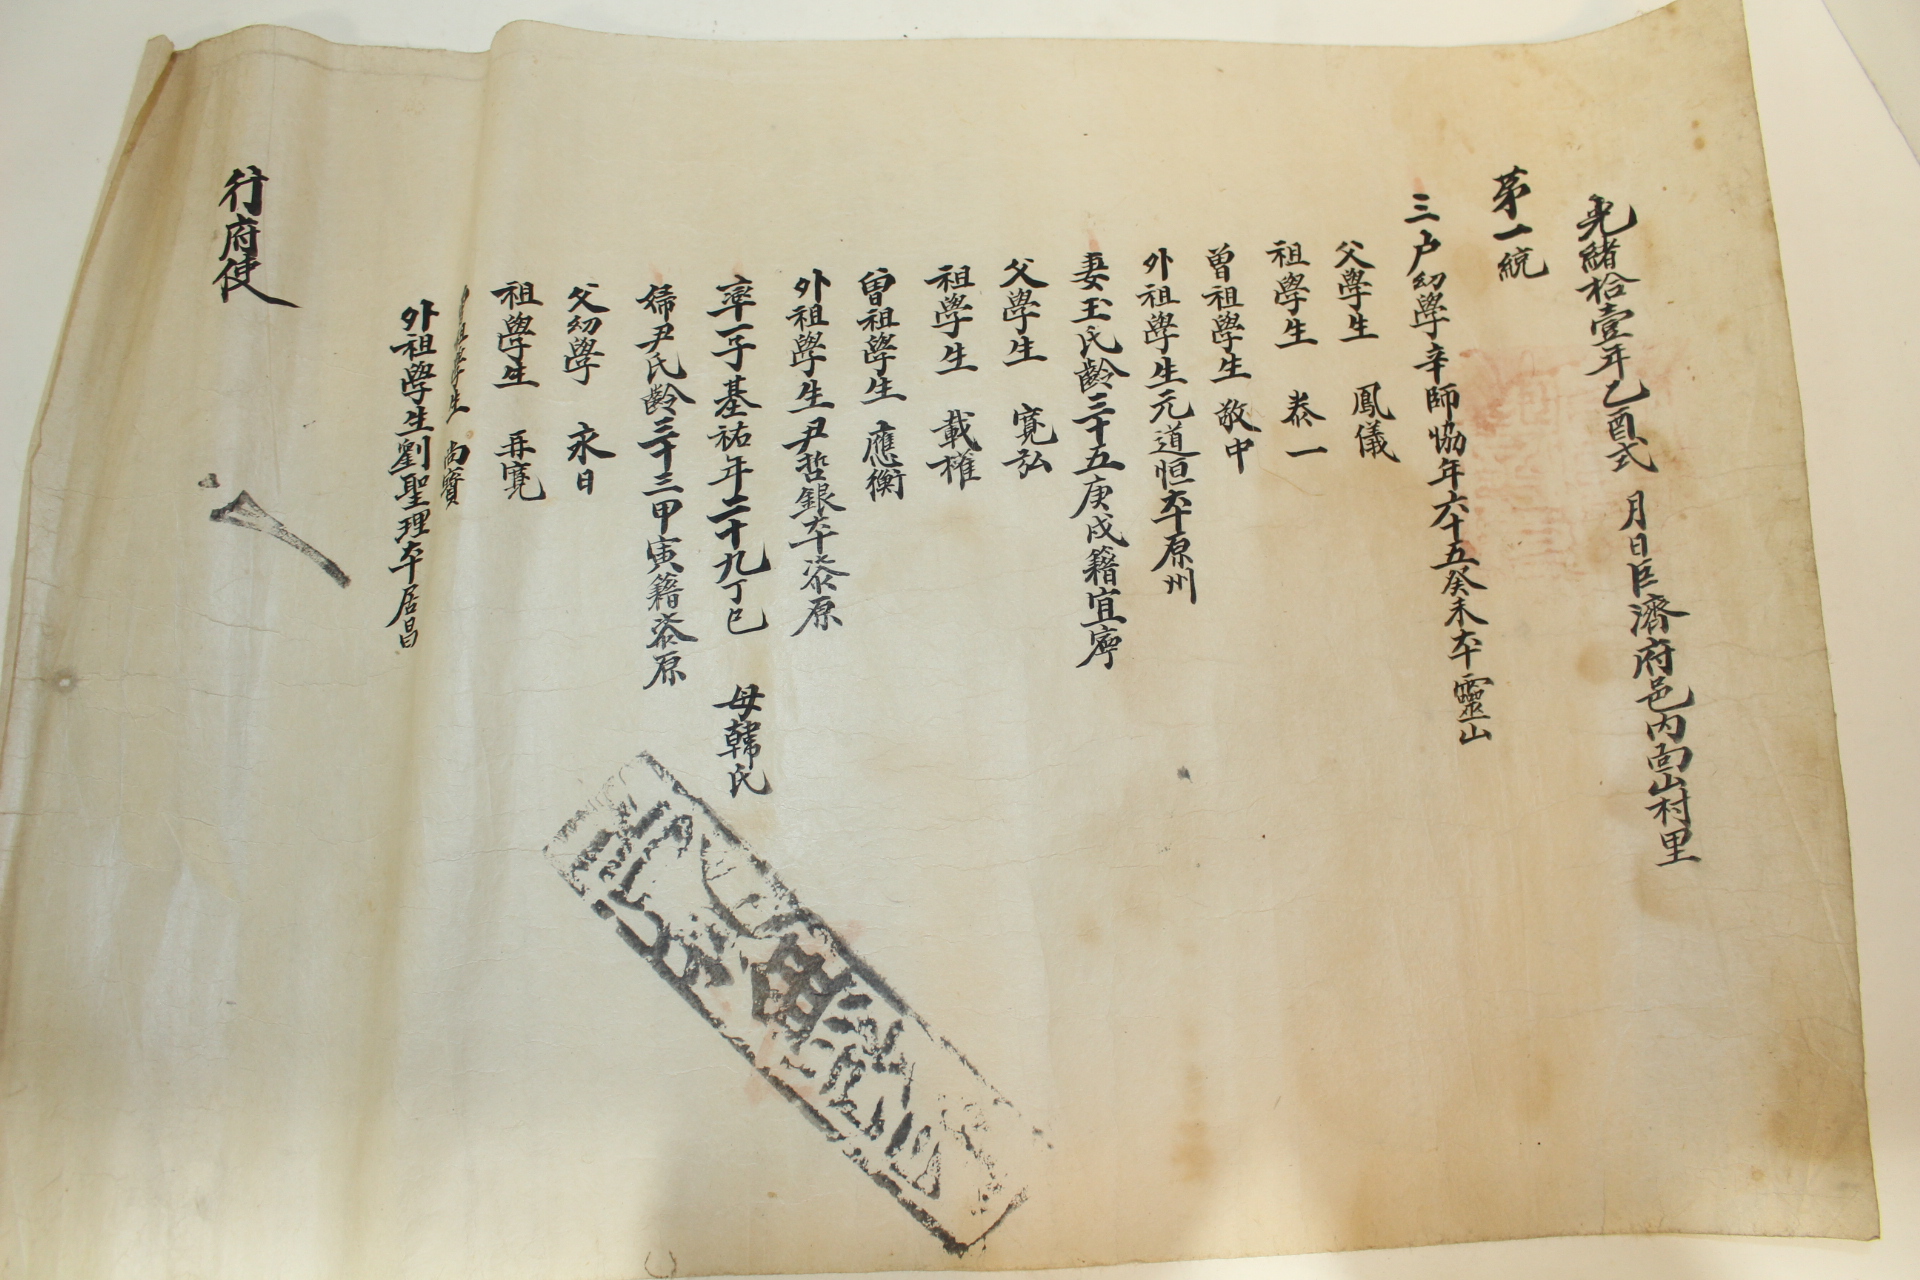 光緖拾壹年乙酉式 月日巨濟府邑內面山村里
第一統
三戶幼學辛師協年六十五癸未本靈山
父學生 鳳儀
祖學生 泰一
曾祖學生 敬中
外祖學生元道恒本原州
妻玉氏齡三十五庚戌籍宜寧
父學生 寬弘
祖學生 載權
曾祖學生 應衡
外祖學生尹哲銀本柒原
率子基祐年二十九丁巳 母韓氏
婦尹氏齡三十三甲寅籍柒原
父幼學 永日
祖學生 再寬
曾祖學生 尙賓
外祖學生劉聖理本居昌
行府使